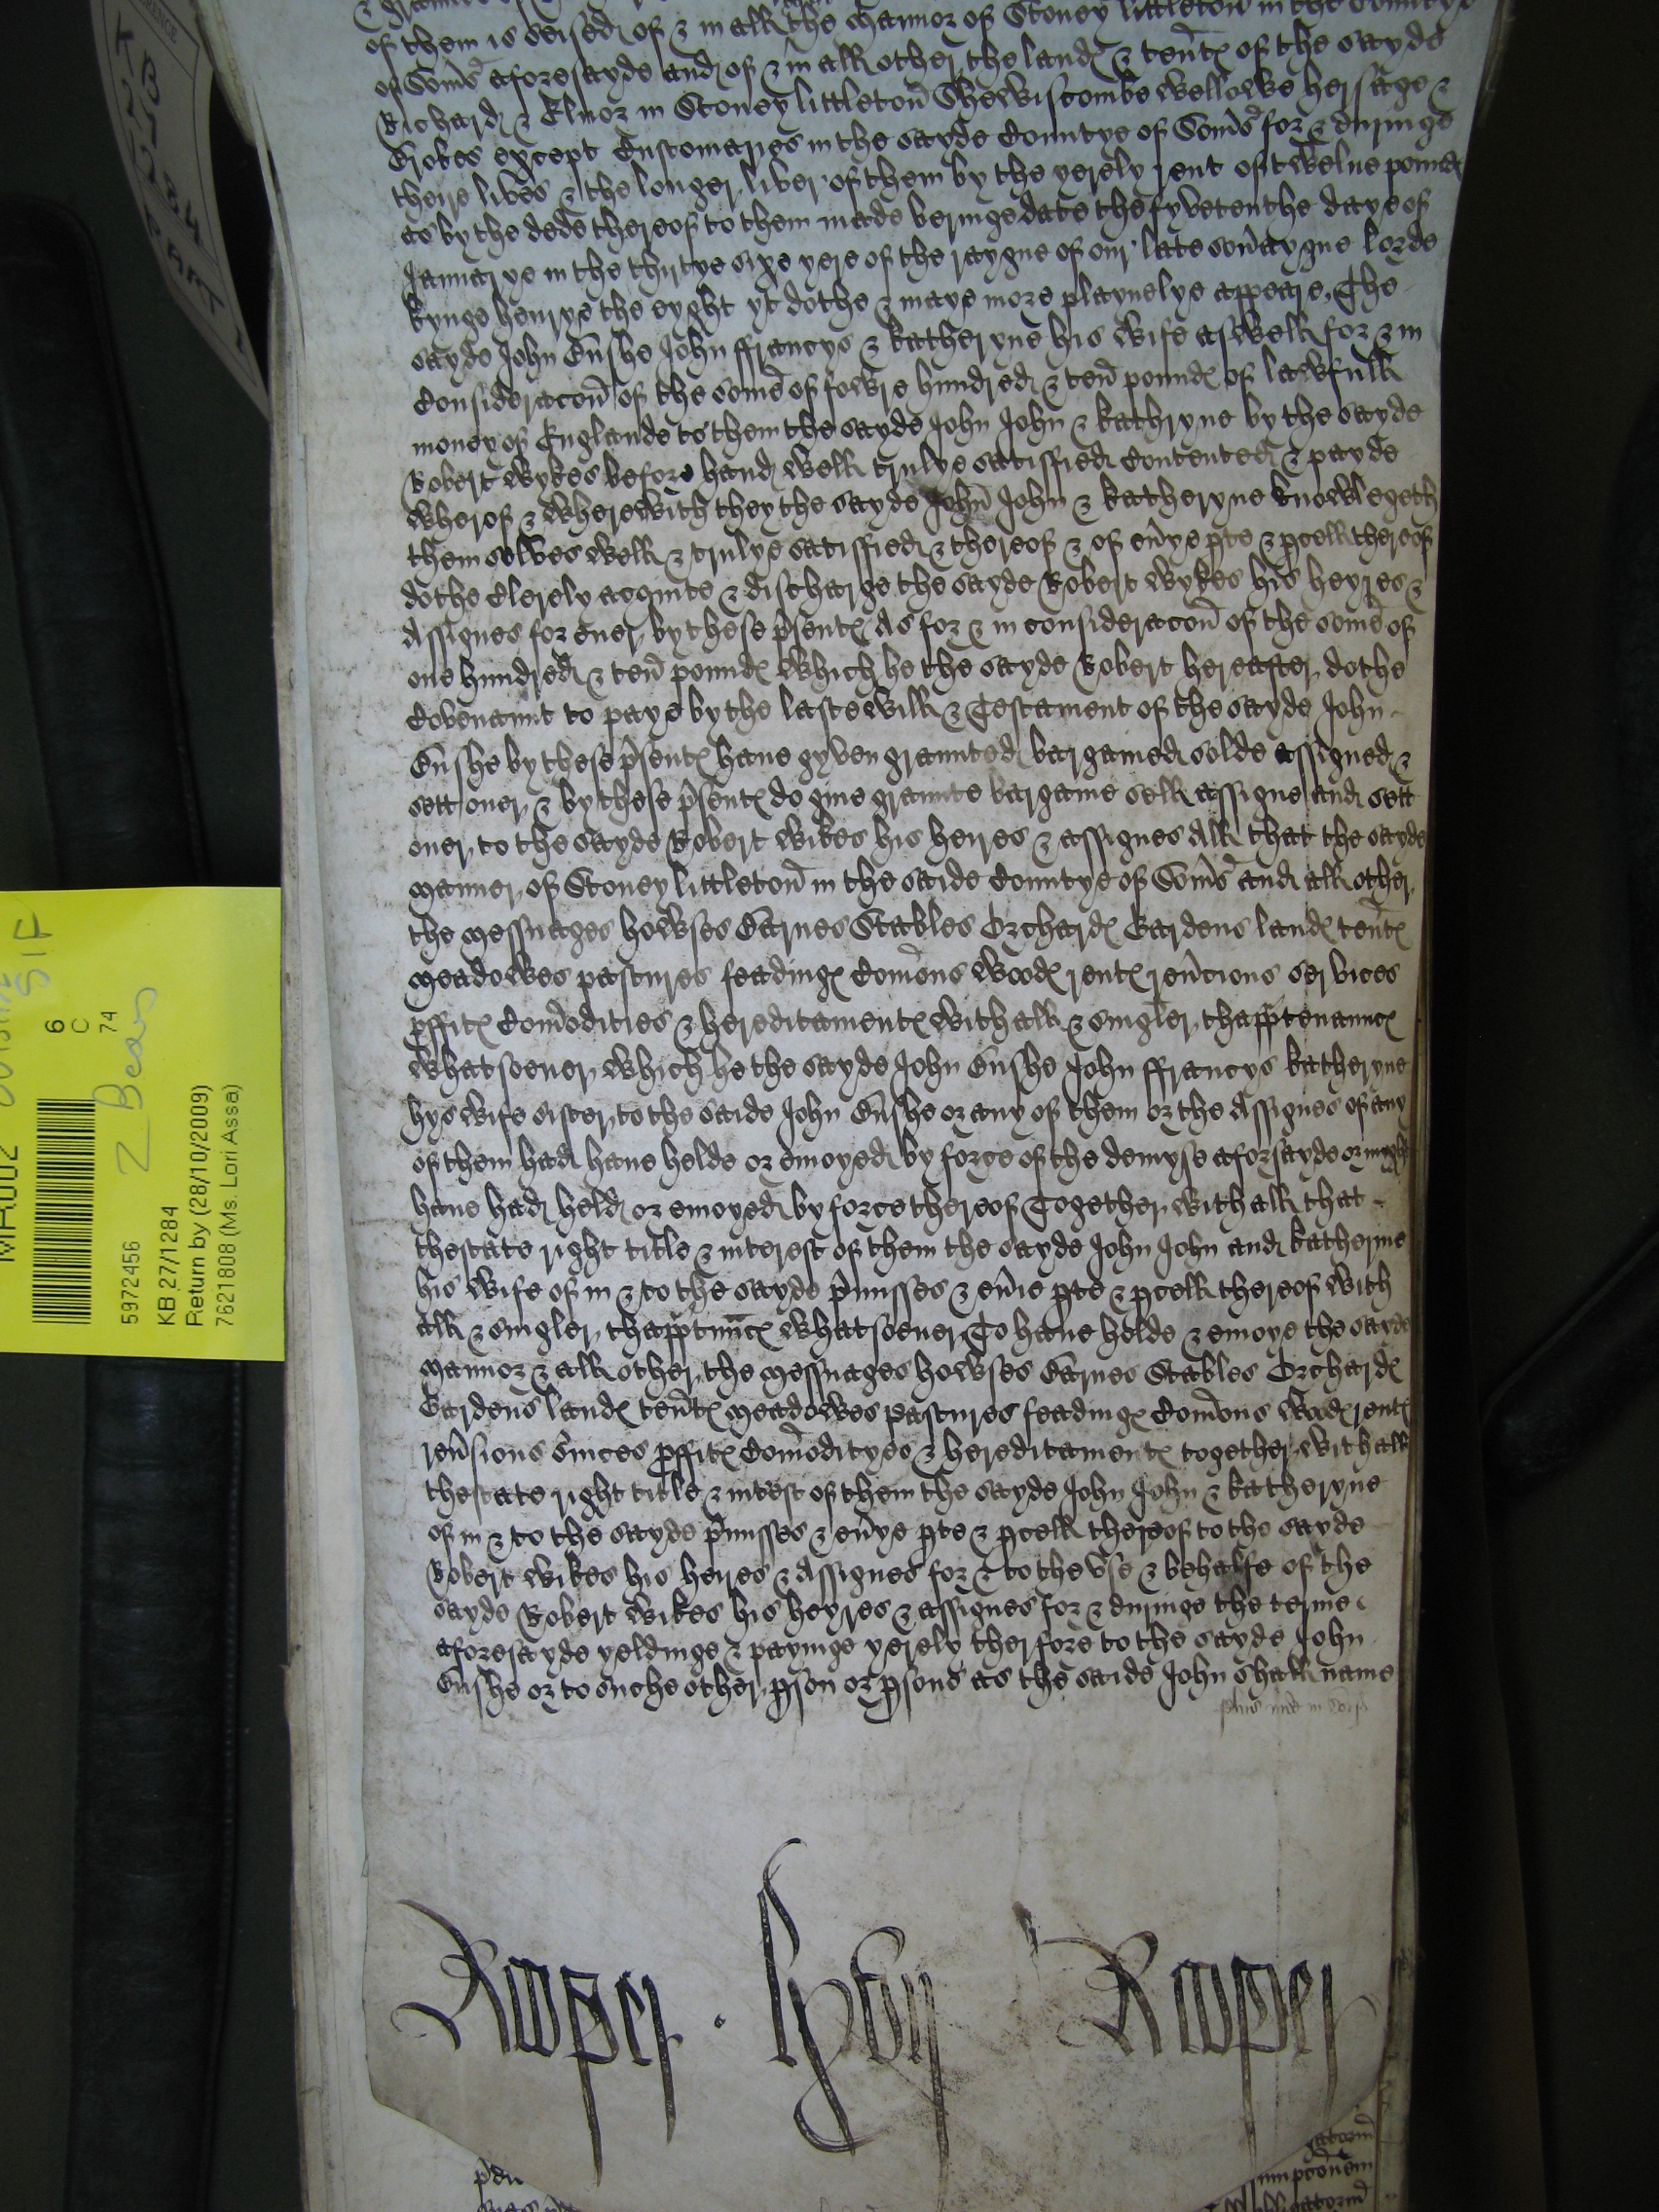 of them is seised of & in all the mannor of Stoney littleton in the Countye
of Somſ aforesayde and of & in all other the landℯ & tentℯ of the sayde
Richard & Elinor in Stoney littleton Shewiscombe Wellowe hersage &
Crokes except Customaries in the sayde Countye of Somſ for & duringe
theire lives & the longer liver of them by the yerely rent of twelve poundℯ
as by the dede thereof to them made beringe date the fyvetenthe daye of
Januarye in the thirtye sixe yere of the raygne of our late sov'aygne lorde
kynge henrye the eyght yt dothe & maye more playnelye appeare, The
sayde John Bushe John ffrancys & katheryne his wife aswell for & in
Consideracon of the some of fowre hundred & ten poundℯ of lawfull
money of Englande to them the sayde John John & kathryne by the sayde
Robert Wykes before hand well trulye satisfied Contented & payde
wherof & wherewith they the sayde John John & katheryne knowlegeth
them selves well & trulye satisfied & thereof & of ev'ye pte & pcell thereof
dothe Clerely acquite & discharge the sayde Robert wykes his heyres &
Assignes for ever by these p'sentℯ As for & in consideracon of the some of
one hundred & ten poundℯ which he the sayde Robert hereafter dothe
Covenaunt to paye by the laste will & Testament of the sayde John
Bushe by these p'sentℯ haue gyven graunted bargained solde assigned &
sett over & by these p'sentℯ do giue graunte bargaine sell assigne and sett
ouer to the sayde Robert wikes his heires & assignes All that the sayde
manner of Stoney littleton in the saide Countye of Somſ and all other
the messuages howses Barnes Stables Orchardℯ Gardens landℯ tentℯ
meadowes pastures feadingℯ Comons woodℯ rentℯ reu'cions services
pffitℯ Comodities & hereditamentℯ with all & singler thapp'tenauncℯ
whatsoeuer which he the sayde John Bushe John ffrancys katheryne
hys wife sister to the saide John Bushe or any of them or the Assignes of any
of them had haue helde or enioyed by force of the demyse aforsayde or might
haue had held or enioyed by force thereof Together with all that
thestate right title & interest of them the sayde John John and katherine
his wife of in & to the sayde p'misses & eu'ie pte & pcell thereof with
all & singler thapp'tnncℯ whatsoeuer To haue holde & enioye the sayde
mannor & all other the messuages howses Barnes Stables Orchardℯ
Gardens landℯ tentℯ meadowes pastures feadingℯ Comons wodℯ rentℯ
reu'sions s'uices pffitℯ Comodityes & hereditamentℯ together with all
thestate right title & int'est of them the sayde John John & katheryne
of in & to the sayde p'misses & eu'ye pte & pcell thereof to the sayde
Robert wikes his heires & Assignes for & to the vse & behalfe of the
sayde Robert wikes his heyres & assignes for & duringe the terme
aforesayde yeldinge & payinge yerely therfore to the sayde John
Bushe or to suche other pson or psons as the saide John shall name
Rooper . Rooper
6
C
74
2 Bears
5972456
KB 27/1284
Return by (28/10/2009)
7621808 (Ms. Lori Assa)